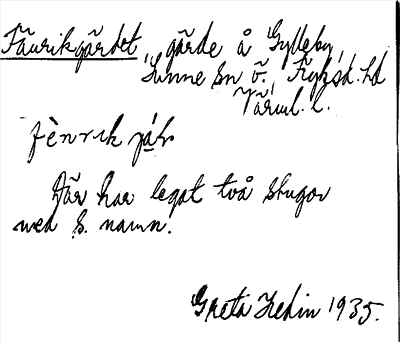 Fänrikgärdet, gärde å Gylleby,
Sunne sn Ö. Fryksd. hd
Värml. l.
Där har legat två stugor
med s. namn.
Greta Hedin 1935.